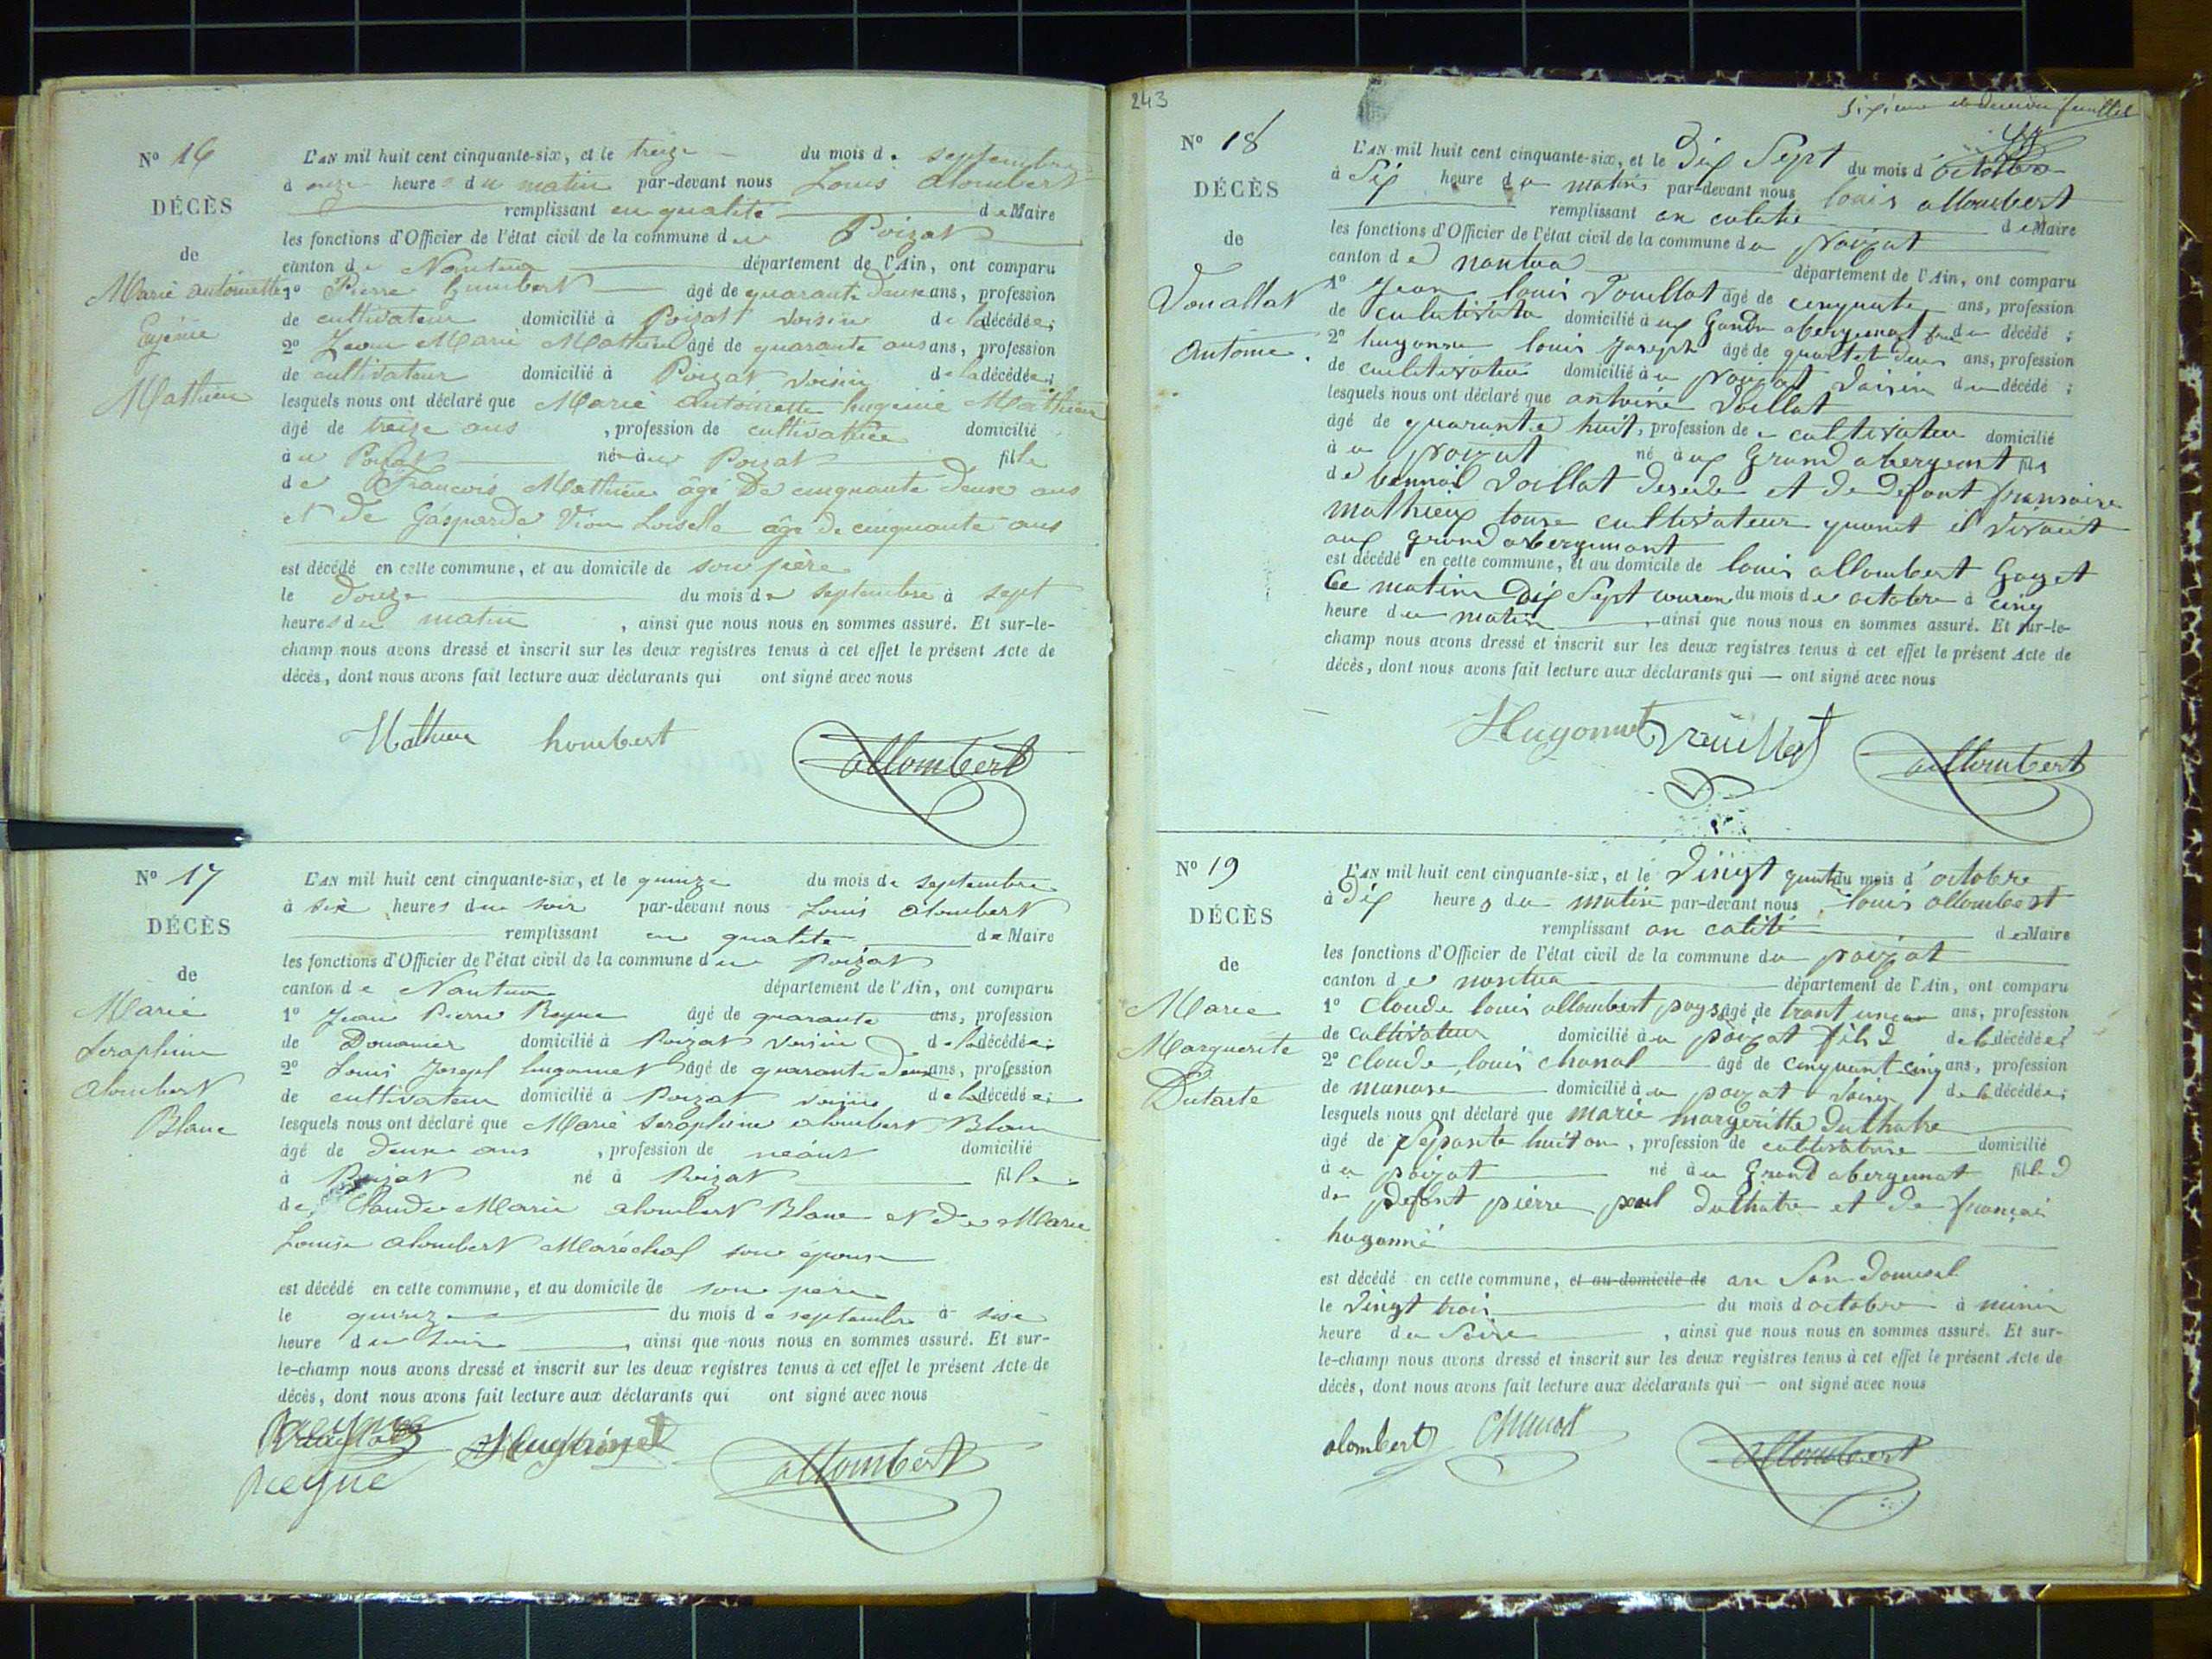 Nº 16
DÉCÈS
de
Marie antoinette
Eugénie
Mathieu
L'AN mil huit cent cinquante-six, et le treize du mois de septembre
à onze heures du matin par-devant nous Louis alombert
remplissant en qualité de Maire
les fonctions d'Officier de l'état civil de la commune du Poizat
canton de Nantua département de l'Ain, ont comparu
1º Pierre humbert âgé de quarante deux ans, profession
de cultivateur domicilié à Poizat voisin de la décédée;
2º Jean Marie Mathieu âgé de quarante ans ans, profession
de cultivateur domicilié à Poizat voisin de la décédée;
lesquels nous ont déclaré que Marie Antoinette hugenie Mathieu
âgé de treize ans, profession de cultivatrice domicilié
à u Poizat né à u Poizat fille
de François Mathieu âgé de cinquante deux ans
et de Gasparde Vion Loiselle âgé de cinquante ans
est décédé en cette commune, et au domicile de son père
le douze du mois de septembre à sept
heures du matin, ainsi que nous nous en sommes assuré. Et sur-le-
champ nous avons dressé et inscrit sur les deux registres tenus à cet effet le présent Acte de
décès, dont nous avons fait lecture aux déclarants qui ont signé avec nous
Mathieu humbert allombert
Nº 17
DÉCÈS
de
Marie
Seraphine
alombert
Blanc
L'AN mil huit cent cinquante-six, et le quinze du mois de septembre
à six heures du soir par-devant nous Louis alombert
remplissant en qualité de Maire
les fonctions d'Officier de l'état civil de la commune du poizat
canton de Nantua département de l'Ain, ont comparu
1º Jean Pierre Reyne âgé de quarante ans, profession
de Douanier domicilié à Poizat voisin de la décédée;
2º Louis Josepl hugonnet âgé de quarante deux ans, profession
de cultivateur domicilié à Poizat voisin de la décédée;
lesquels nous ont déclaré que Marie Seraphine alombert Blanc
âgé de deux ans, profession de néant domicilié
à Poizat né à Poizat fille
de Claude Marie alombert Blanc et de Marie
Louise alombert Maréchal son épouse
est décédé en cette commune, et au domicile de son père
le quinze du mois de septembre à sise
heure du soir, ainsi que nous nous en sommes assuré. Et sur-
le-champ nous avons dressé et inscrit sur les deux registres tenus à cet effet le présent Acte de
décès, dont nous avons fait lecture aux déclarants qui ont signé avec nous
Hugonnet allombert
reyne
243
sixieme et dernier feuillet
Nº 18
DÉCÈS
de
Vouallat
Antoine.
L'AN mil huit cent cinquante-six, et le Dix Sept du mois d'octobre
à Six heure du matin par-devant nous louis allombert
remplissant an calité de Maire
les fonctions d'Officier de l'état civil de la commune du poizat
canton de nantua département de l'Ain, ont comparu
1º Jean louis Vouillat âgé de cinquante ans, profession
de domicilié à ux abergemant du décédé;
2º hugonne louis Joseph âgé de ans, profession
de domicilié à u poizat voisin du décédé;
lesquels nous ont déclaré que antoine Voillat
âgé de quarante huit, profession de cultivateu domicilié
à u poizat né à ux Grand abergemt fils
de Voillat et de defont fransoise
mathieux touse cultivateur quant il vivait
aux grand abergemant
est décédé en cette commune, et au domicile de louis allombert Goyet
Ce matin Dix Sept du mois de octobre à cinq
heure du matin, ainsi que nous nous en sommes assuré. Et sur-le-
champ nous avons dressé et inscrit sur les deux registres tenus à cet effet le présent Acte de
décès, dont nous avons fait lecture aux déclarants qui — ont signé avec nous
Hugonnet Vouillat allombert
Nº 19
DÉCÈS
de
Marie
Marguerite
Dutarte
L'AN mil huit cent cinquante-six, et le Vingt quatre du mois d'octobre
à Dix heures du matin par-devant nous louis allombert
remplissant an calité de Maire
les fonctions d'Officier de l'état civil de la commune du poizat
canton de nantua département de l'Ain, ont comparu
1º Claude louis allombert âgé de trant un ans, profession
de cultivateur domicilié à u poizat fils de la décédée;
2º Claude louis chanal âgé de cinquant cinq ans, profession
de domicilié à u poizat voisin de la décédée;
lesquels nous ont déclaré que marie margeritte duthatre
âgé de sepante huit an, profession de cultivatrise domicilié
à u poizat né à u Grand abergemat fille
de defont pierre poul duthatre et de françoi
hugonné
est décédé en cette commune, et au domicile de an Son Domicil
le vingt trois du mois d octobre à
heure du soire, ainsi que nous nous en sommes assuré. Et sur-
le-champ nous avons dressé et inscrit sur les deux registres tenus à cet effet le présent Acte de
décès, dont nous avons fait lecture aux déclarants qui — ont signé avec nous
alombert Chanal allombert